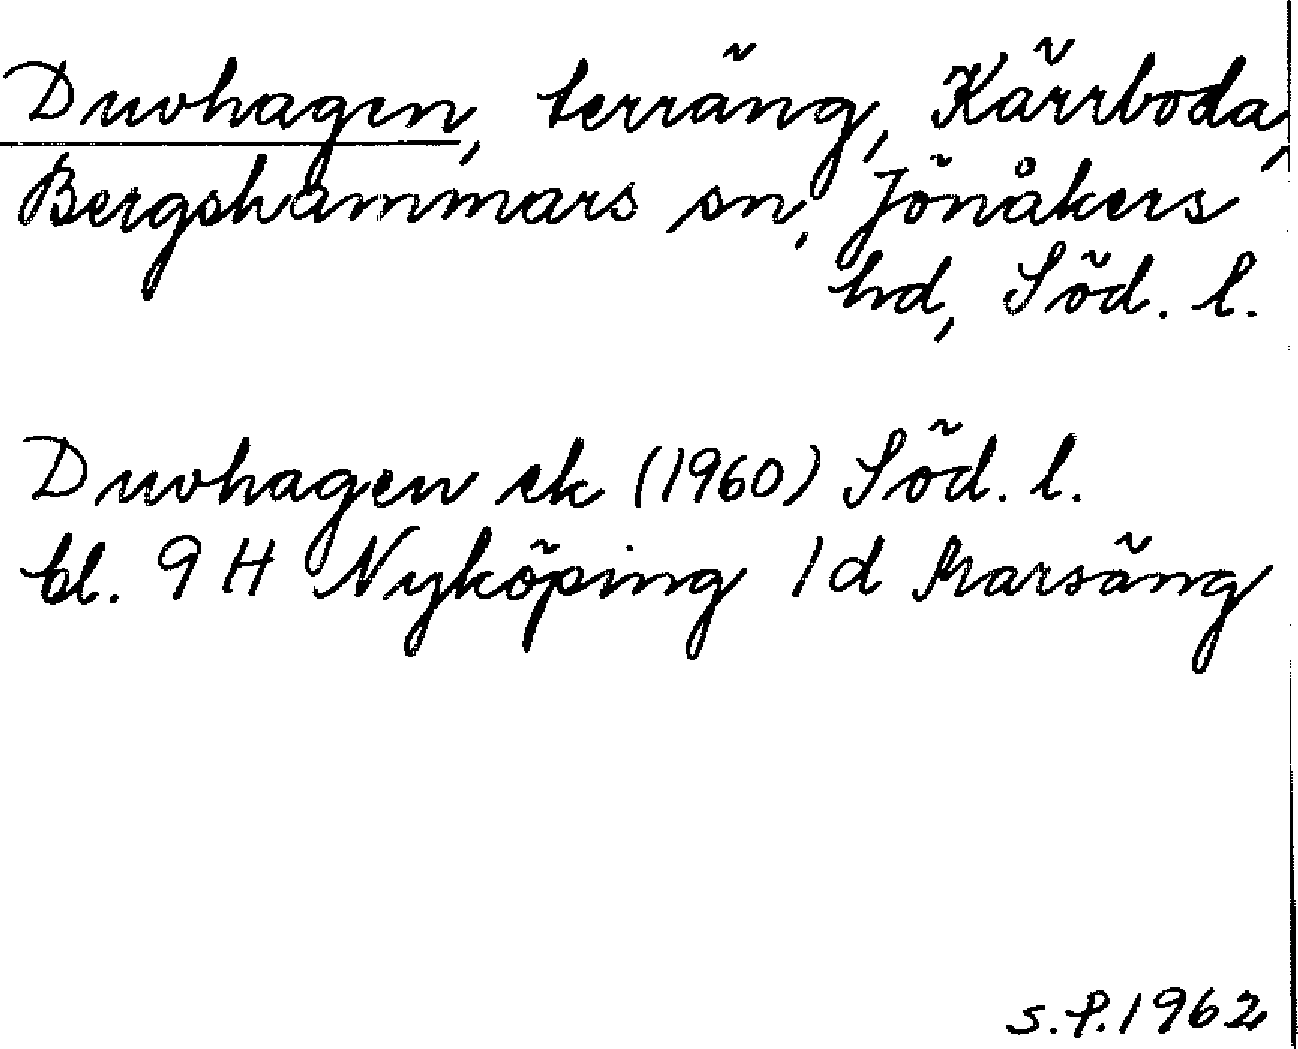 Duvhagen, terräng, Kärrboda,
Bergshammars sn, Jönåkers
hd, Söd. l.
Duvhagen ek (1960) Söd. l.
bl. 9 H Nyköping 1 d Marsäng
S.P. 1962